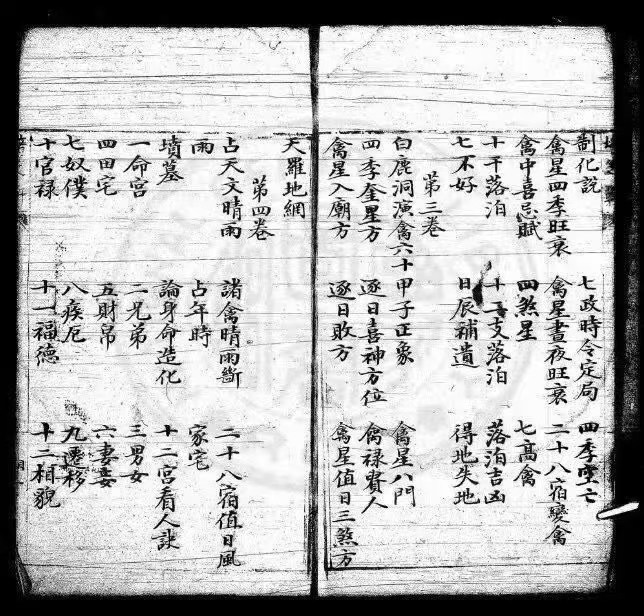 制化說 七政時令定局 四季空亡
禽星四季旺衰 禽星晝夜旺衰 二十八宿變禽
禽中喜忌賦 四煞星 七高禽
十干落泊 十二支落泊 落泊吉凶
七不好 日辰補遺 得地失地
第三卷
白鹿洞演禽六十甲子正象 禽星八門
四季奎星方 逐日喜神方位 禽祿貴人
禽星入廟方 逐日敗方 禽星值日三煞方
天羅地網
第四卷
占天文晴雨 諸禽晴雨斷 二十八宿值日風
雨 占年時 家宅
墳墓 論身命造化 十二宮看人訣
一命宮 二兄弟 三男女
四田宅 五財帛 六妻妾
七奴僕 八疾厄 九遷移
十官祿 十一福德 十二相貌